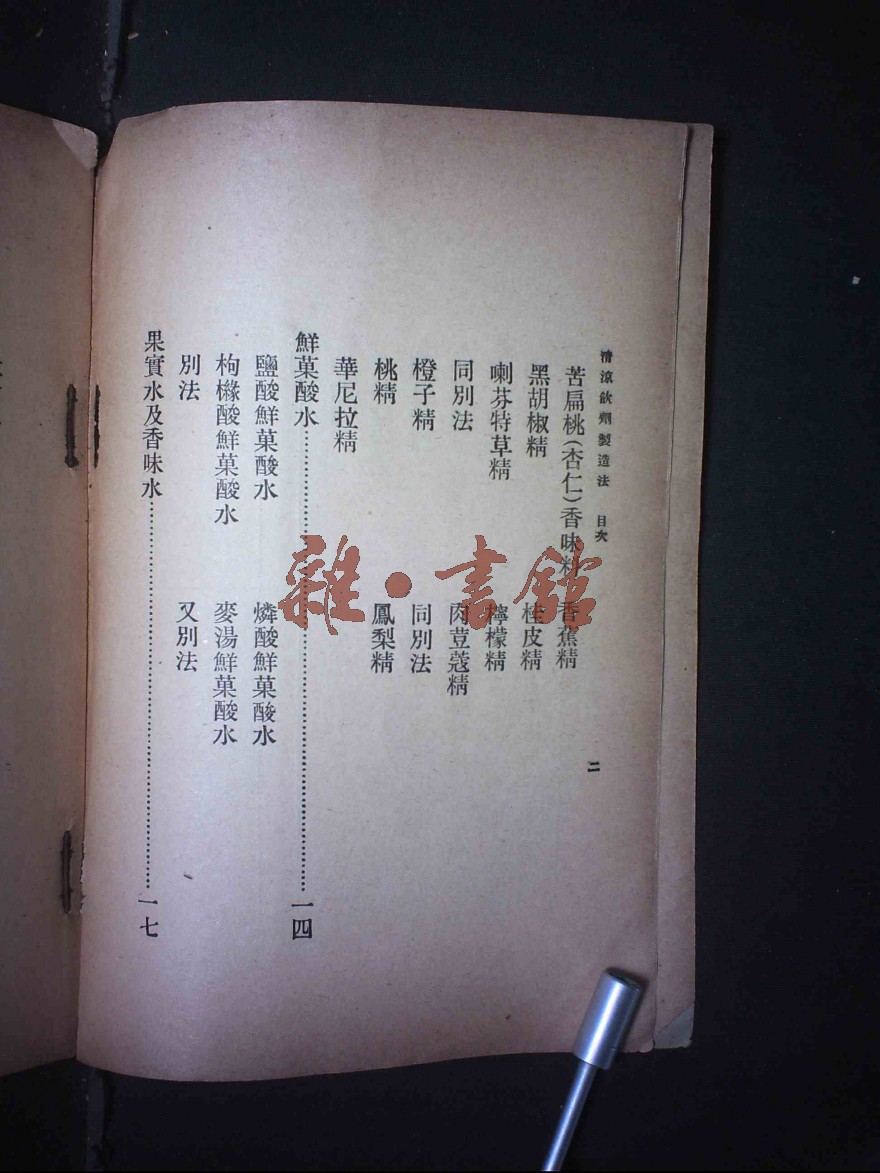 清涼飲劑製造法　目次
二
苦扁桃(杏仁)香味精　香蕉精
黑胡椒精　桂皮精
喇芬特草精　檸檬精
同別法　肉荳蔻精
橙子精　同別法
桃精　鳳梨精
華尼拉精
鮮菓酸水……一四
鹽酸鮮菓酸水　燐酸鮮菓酸水
枸櫞酸鮮菓酸水　麥湯鮮菓酸水
別法　又別法
果實水及香味水……一七
雜·書館